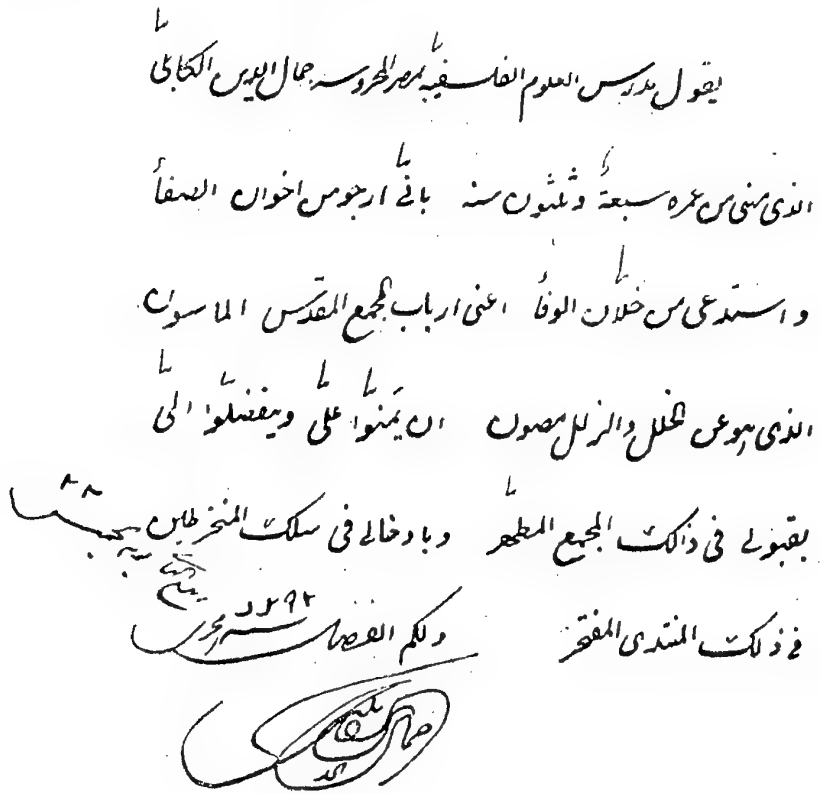 يقول مدرس العلوم الفلسفية بمصر المحروسه جمال الدين الكابلي
الذى مضى من عمره سبعة وثلثون سنه بانى ارجو من اخوان الصفا
واستدعى من خلان الوفا اعنى ارباب المجمع المقدس الماسون
الذى هو عن الخلل والزلل مصون ان يمنوا على ويتفضلوا الى
بقبولى فى ذلك المجمع المطهر وبادخالى فى سلك المنخرطين
فى ذلك المنتدى المفتخر ولكم الفضل
يوم الخميس ٢٢
١٢٩٢
جمال الدين